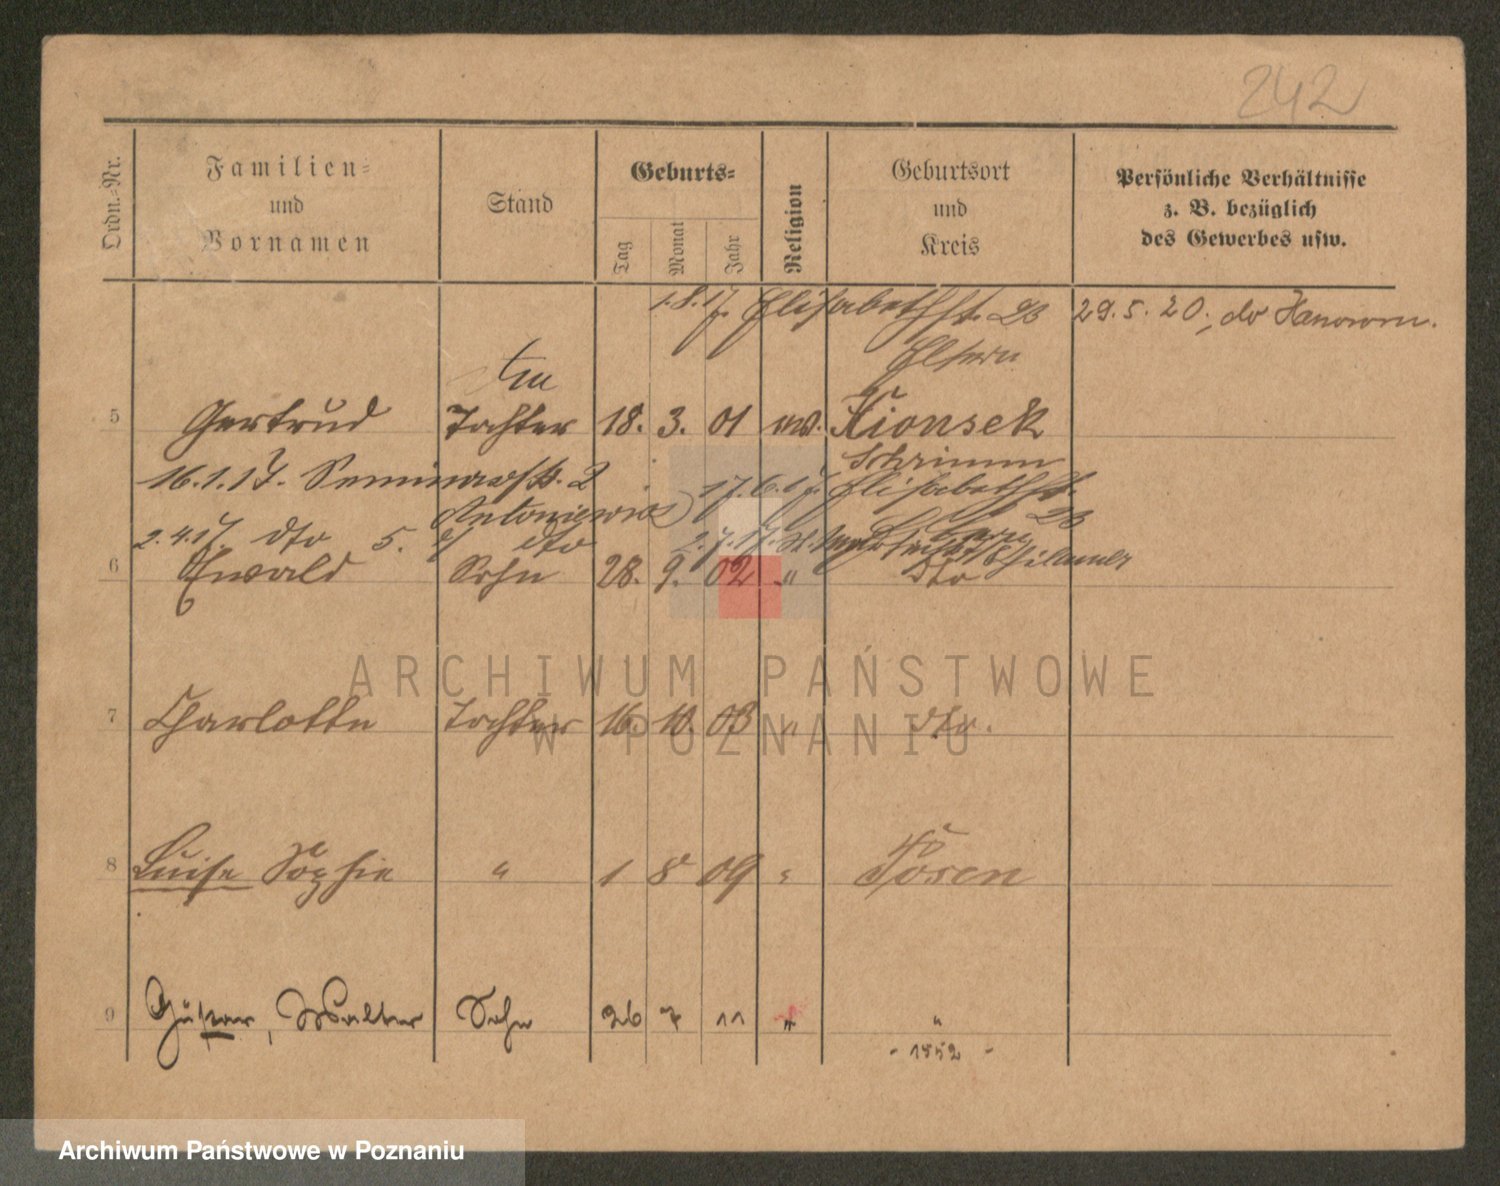 242
Ordn.-Nr.
Familien-
und
Vornamen
Stand
Geburts-
Tag
Monat
Jahr
Religion
Geburtsort
und
Kreis
Persönliche Verhältnisse
z. B. bezüglich
des Gewerbes usw.
1.8.17. Elisabethst. 23 29.5.20.
Eltern
5 Gertrud Tochter 18. 3. 01 ev. Xionsek
Schrimm
16.1.17. Seminarstr. 2 17.6.17. Elisabethst.
23
2.4.17 dto 5. dto 2.7.17.
6 Ewald Sohn 28. 9. 02 " dto
7 Charlotte Tochter 16. 10. 03 " dto.
8 Luise Sophie " 1 8 09 " Posen
9 Gustav, Walter Sohn 26 7 11 " "
- 1852 -
ARCHIWUM PAŃSTWOWE
W POZNANIU
Archiwum Państwowe w Poznaniu